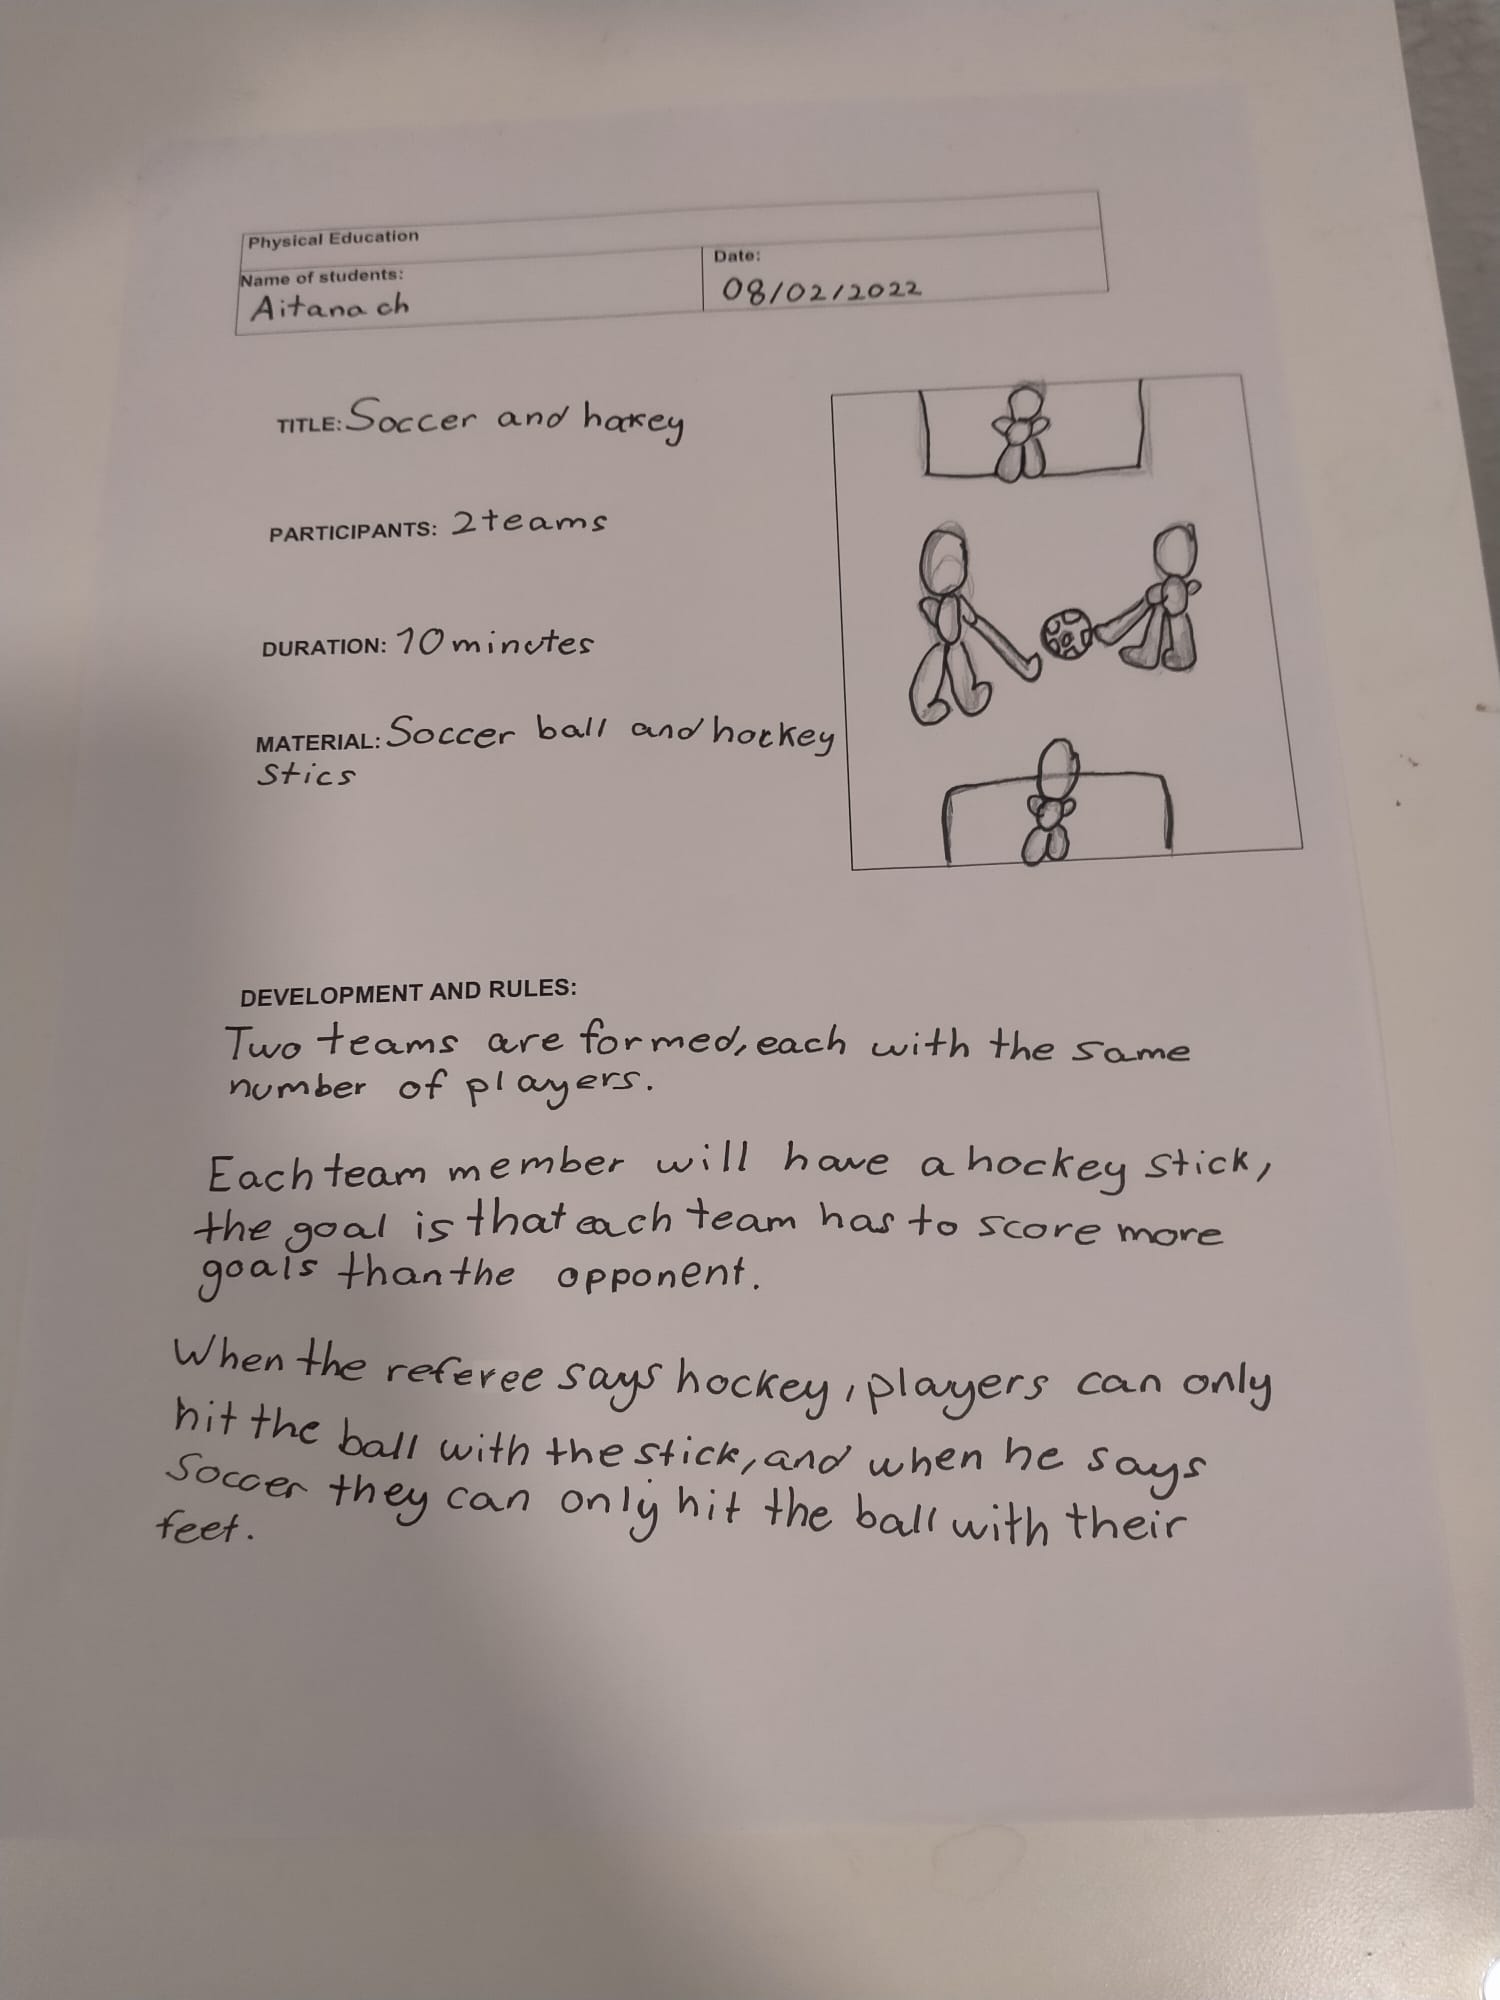 Physical Education
Name of students:
Aitana ch
Date:
08/02/2022
TITLE: Soccer and hakey
PARTICIPANTS: 2 teams
DURATION: 10 minutes
MATERIAL: Soccer ball and hockey
stics
DEVELOPMENT AND RULES:
Two teams are formed, each with the same
number of players.
Each team member will have a hockey stick,
the goal is that each team has to score more
goals than the opponent.
When the referee says hockey, players can only
hit the ball with the stick, and when he says
Soccer they can only hit the ball with their
feet.